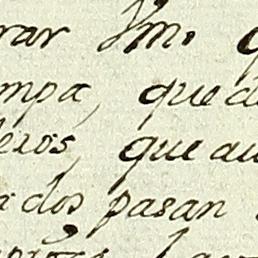 rar Vm. q
mpa, que de
lexos, que au
ados pasan